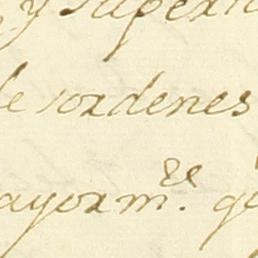 y superi
de sordenes
ayorm.te ge